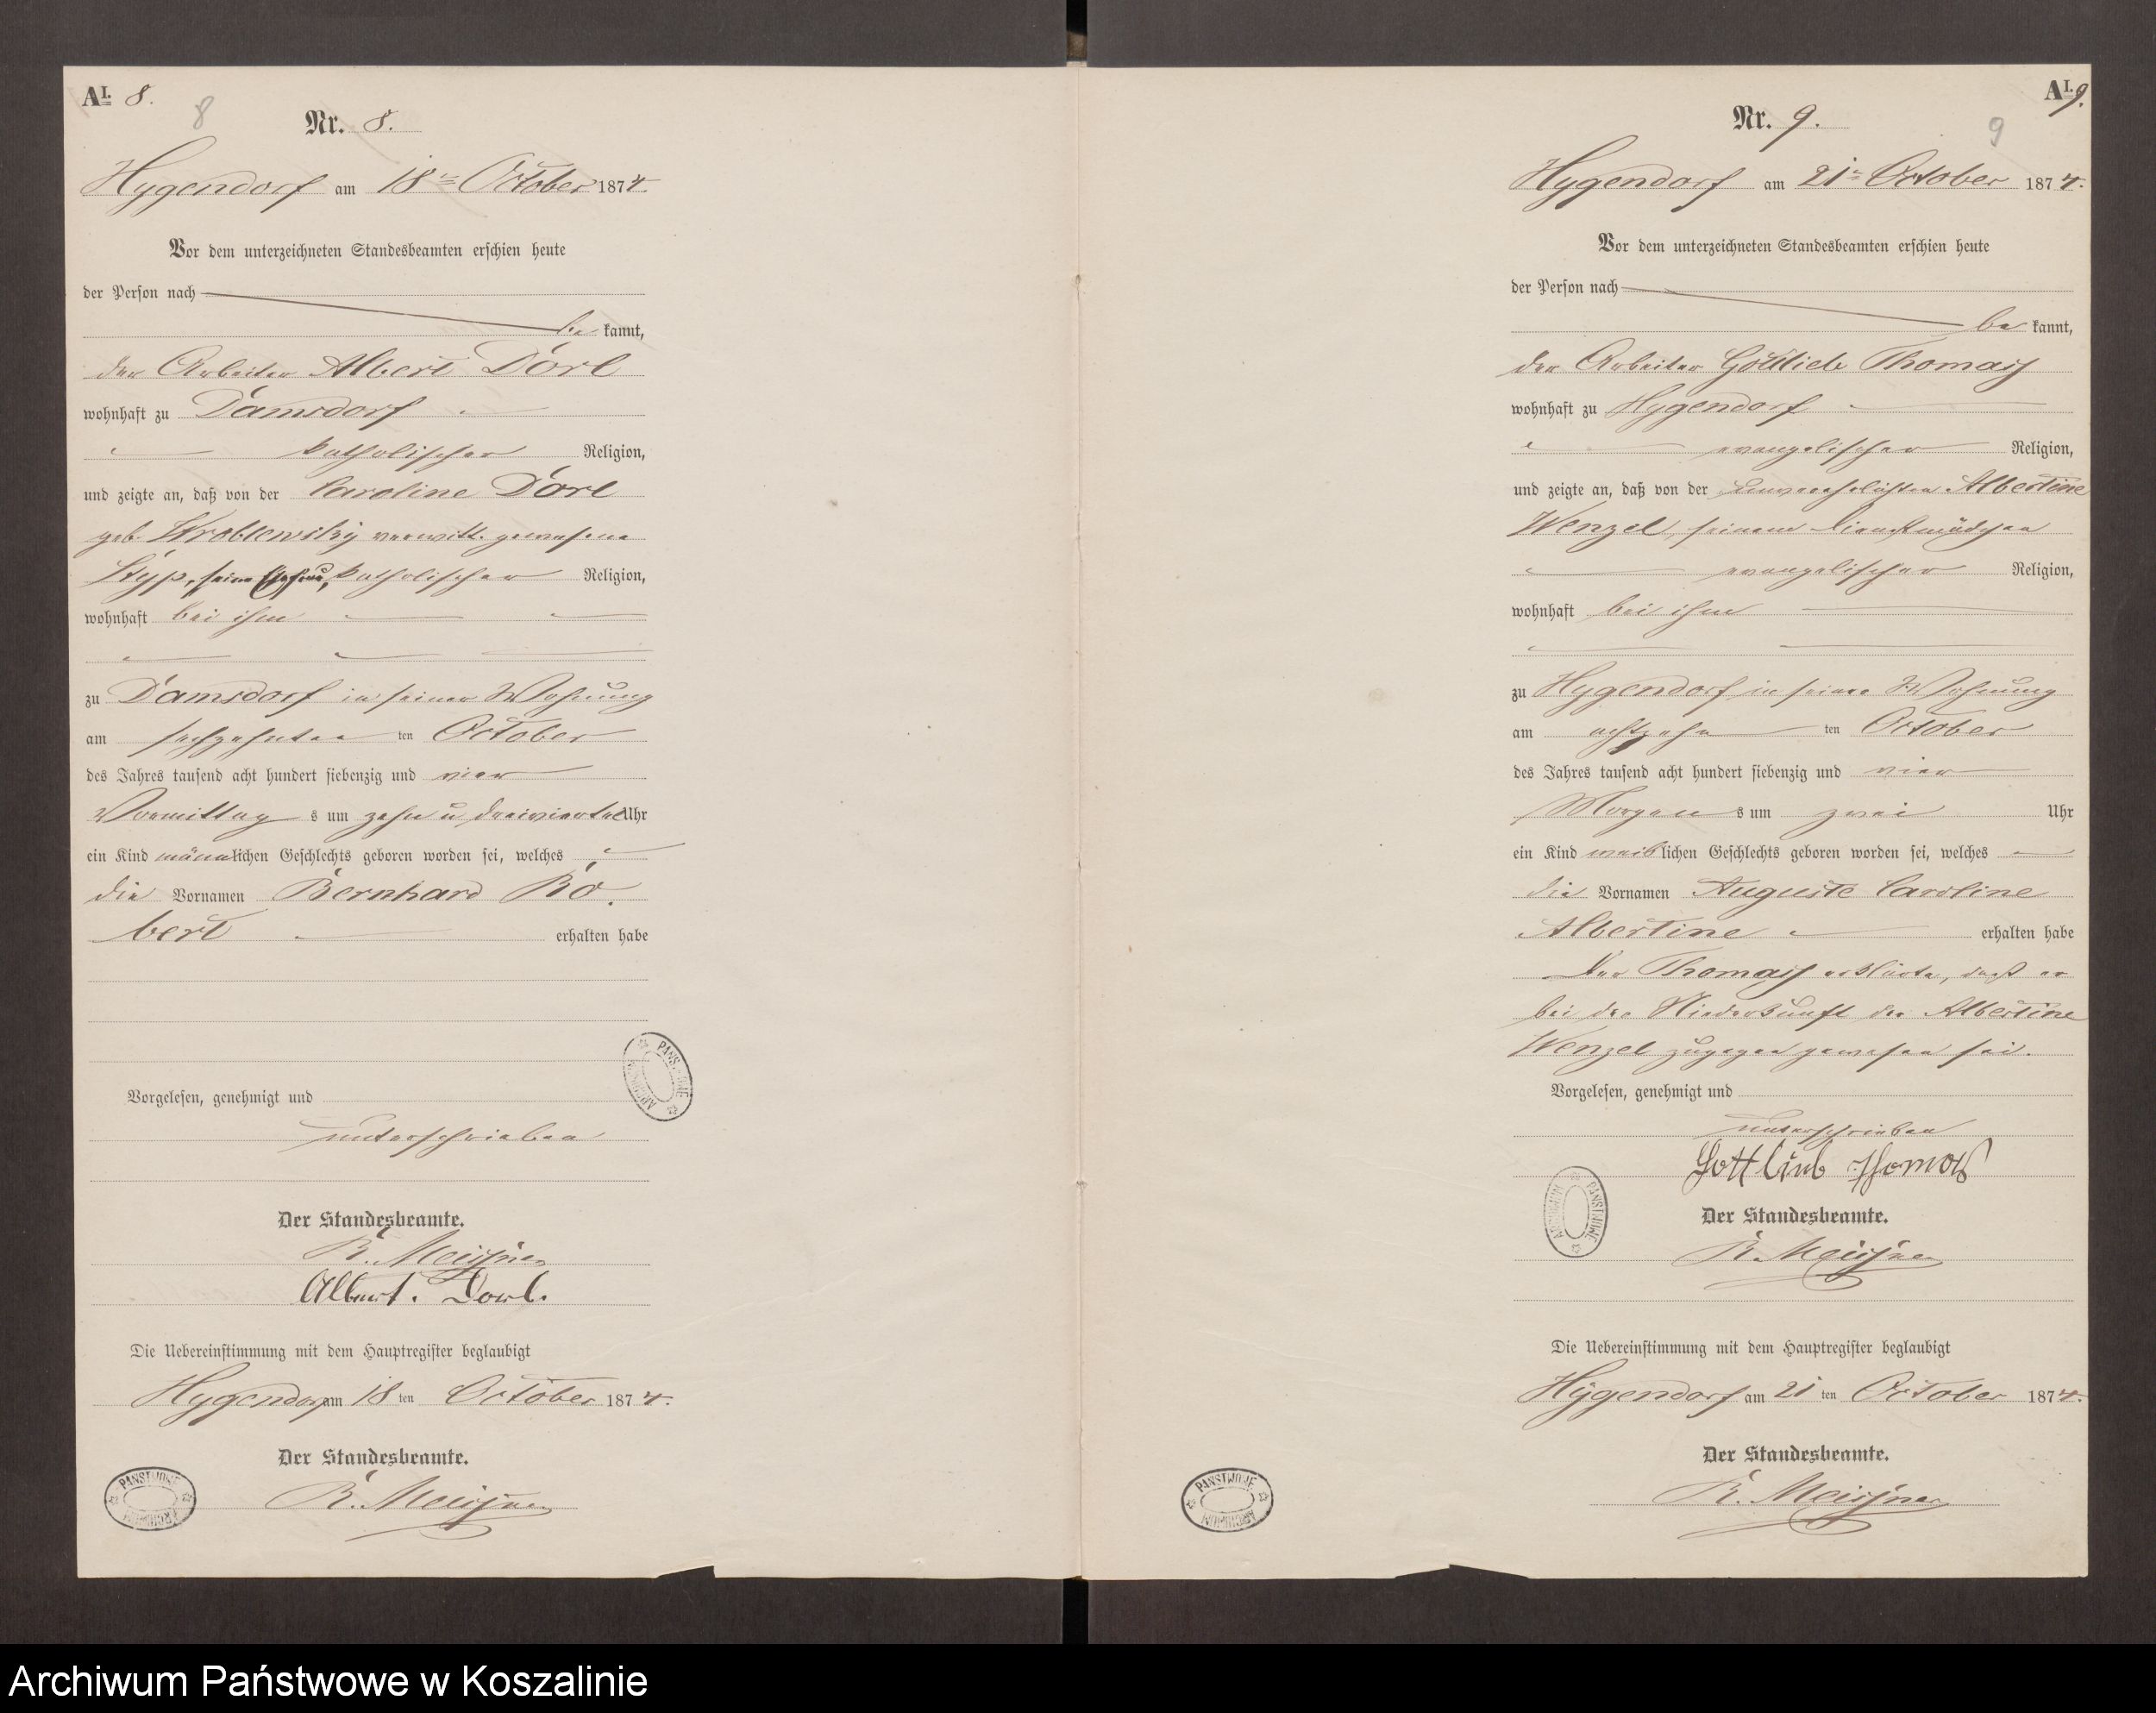 AI. 8.
8
Nr. 8.
Hygendorf am 18ten October 1874.
Vor dem unterzeichneten Standesbeamten erschien heute
der Person nach
be kannt,
der Arbeiter Albert Dorl
wohnhaft zu Damsdorf
katholischer Religion,
und zeigte an, daß von der Caroline Dorl
geb. Wroblewsky verwitt. gewesene
Styp, seine Ehefrau, katholischer Religion,
wohnhaft bei ihm
zu Damsdorf in seiner Wohnung
am sechzehnten ten October
des Jahres tausend acht hundert siebenzig und vier
Vormittag s um zehn u dreiviertel Uhr
ein Kind männlichen Geschlechts geboren worden sei, welches
die Vornamen Bernhard Ro.
bert erhalten habe
Vorgelesen, genehmigt und
unterschrieben
Der Standesbeamte.
R. Meissner
Albert. Dorl.
Die Uebereinstimmung mit dem Hauptregister beglaubigt
Hygendorf am 18 ten October 1874.
Der Standesbeamte.
R. Meissner
PAŃSTWOWE ARCHIWUM
AI. 9.
9
Nr. 9.
Hygendorf am 21ten October 1874.
Vor dem unterzeichneten Standesbeamten erschien heute
der Person nach
be kannt,
der Arbeiter Gottlieb Thomass
wohnhaft zu Hygendorf
evangelischer Religion,
und zeigte an, daß von der unverehelichten Albertine
Wenzel, seinem Dienstmädchen
evangelischer Religion,
wohnhaft bei ihm
zu Hygendorf in seiner Wohnung
am achtzehn ten October
des Jahres tausend acht hundert siebenzig und vier
Morgen s um zwei Uhr
ein Kind weiblichen Geschlechts geboren worden sei, welches
die Vornamen Auguste Caroline
Albertine erhalten habe
Der Thomass erklärte, daß er
bei der Niederkunft der Albertine
Wenzel zugegen gewesen sei.
Vorgelesen, genehmigt und
unterschrieben
Gottlieb Thomass
Der Standesbeamte.
R. Meissner
Die Uebereinstimmung mit dem Hauptregister beglaubigt
Hygendorf am 21 ten October 1874.
Der Standesbeamte.
R. Meissner
PAŃSTWOWE ARCHIWUM
Archiwum Państwowe w Koszalinie